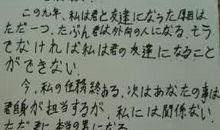 この九年、私は君と友達になった原因は
ただ一つ、たぶん君は外向の人になる。もう
でなければ私は君の友達になること
ができない。
今、私の任務終る、次はあなたの事は
君自身が担当するが、私には関係ない。
ただ君に、本当の男になる